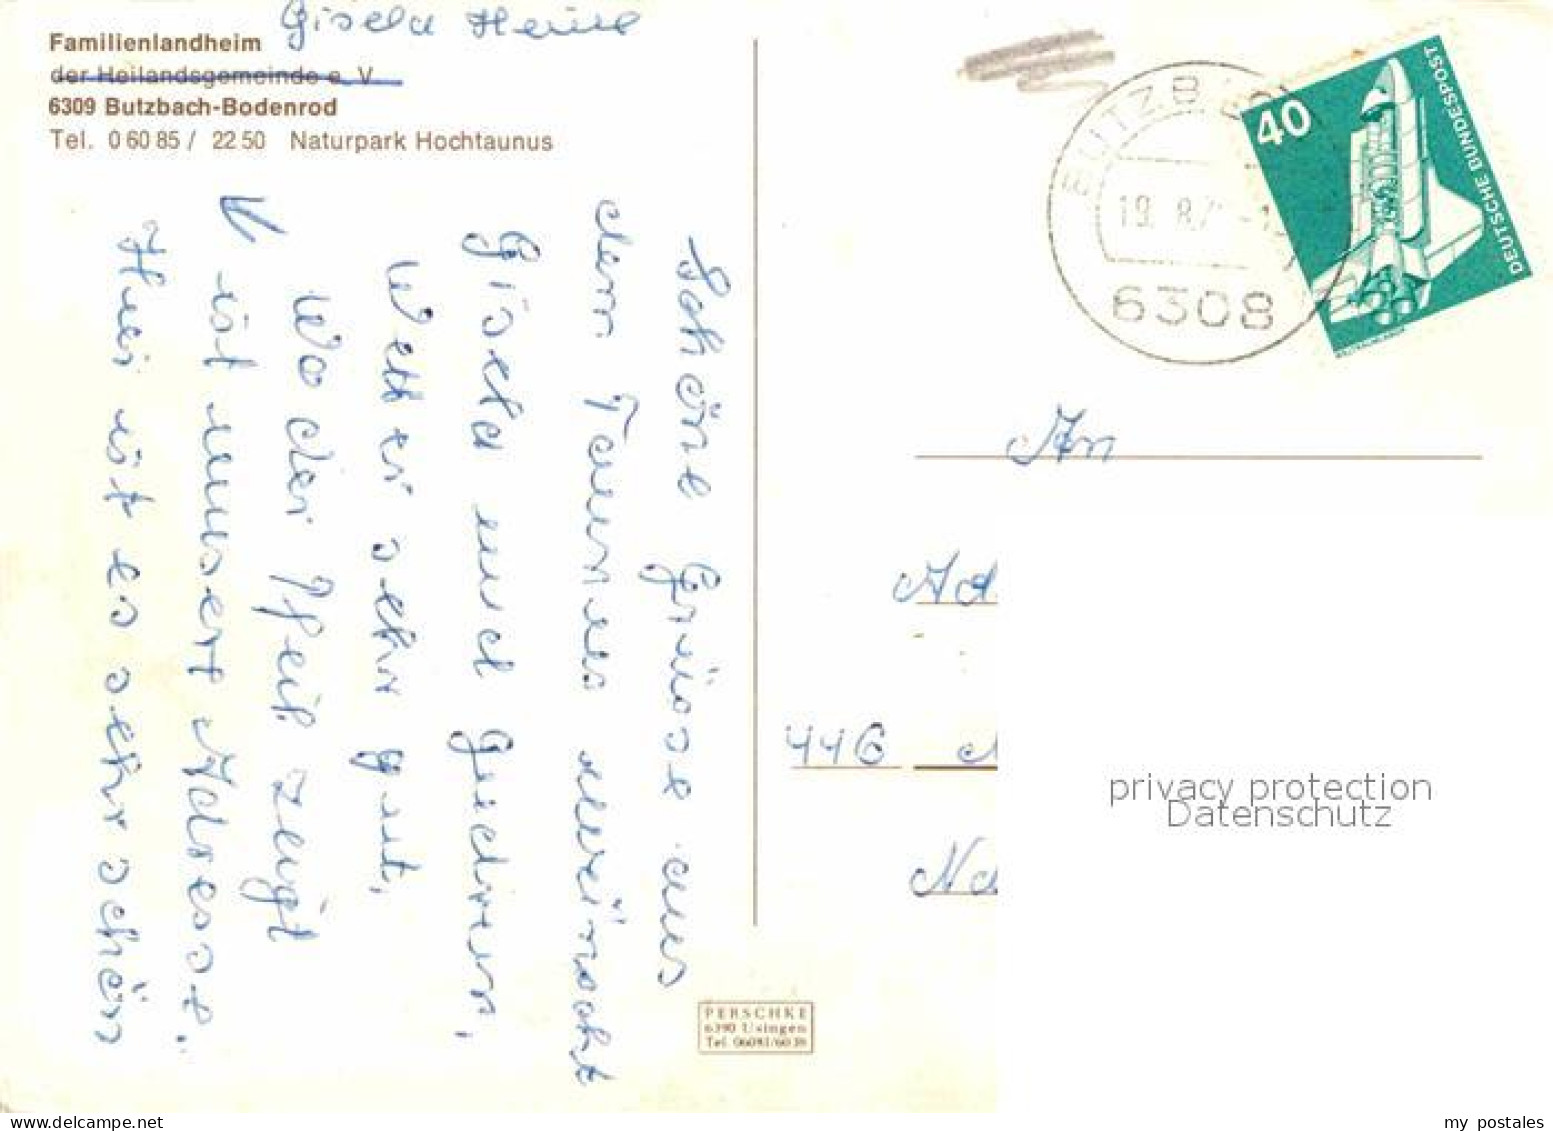 Gisela Heine
Familienlandheim
der Heilandsgemeinde e. V.
6309 Butzbach-Bodenrod
Tel. 0 60 85 / 22 50 Naturpark Hochtaunus
Schöne Grüsse aus
dem Taunus wünscht
Gisela und Gudrun,
Wetter sehr gut,
Wo der Pfeil zeigt
ist unsere Adresse.
Hier ist es sehr schön
PERSCHKE
6390 Usingen
Tel. 06081/6039
BUTZBACH
19. 8.7
6308
40
DEUTSCHE BUNDESPOST
An
446
privacy protection
Datenschutz
my postales